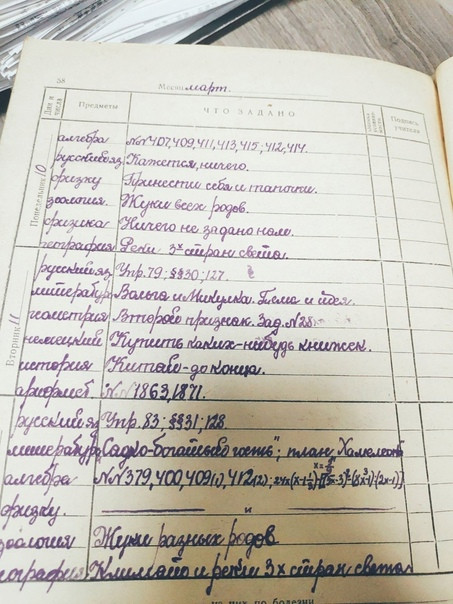 58
Месяц март.
Дни и числа Предметы ЧТО ЗАДАНО Подпись учителя
Понедельник 10
алгебра №№407,409,411,413,415; 412,414.
русский яз Кажется, ничего.
физку Принести себя и тапочки.
зоология Жуки всех родов.
физика Ничего не задано нам.
география Реки 3х стран света.
Вторник 11
русский яз. Упр. 79; §§30; 127.
литература Вольга и Микулка. Тема и идея.
геометрия Второй признак. Зад. №28
немецкий Купить каких-нибудь книжек.
история Китай - до конца.
арифмет. №№1863,1871.
русский яз Упр. 83; §§31; 128
литература "Садко-богатый гость"; план, Хамелеон
алгебра №№379,400,409(1),412(2);
физку. и
зоология Жуки разных родов
география Климат и реки 3х стран света
по болезни